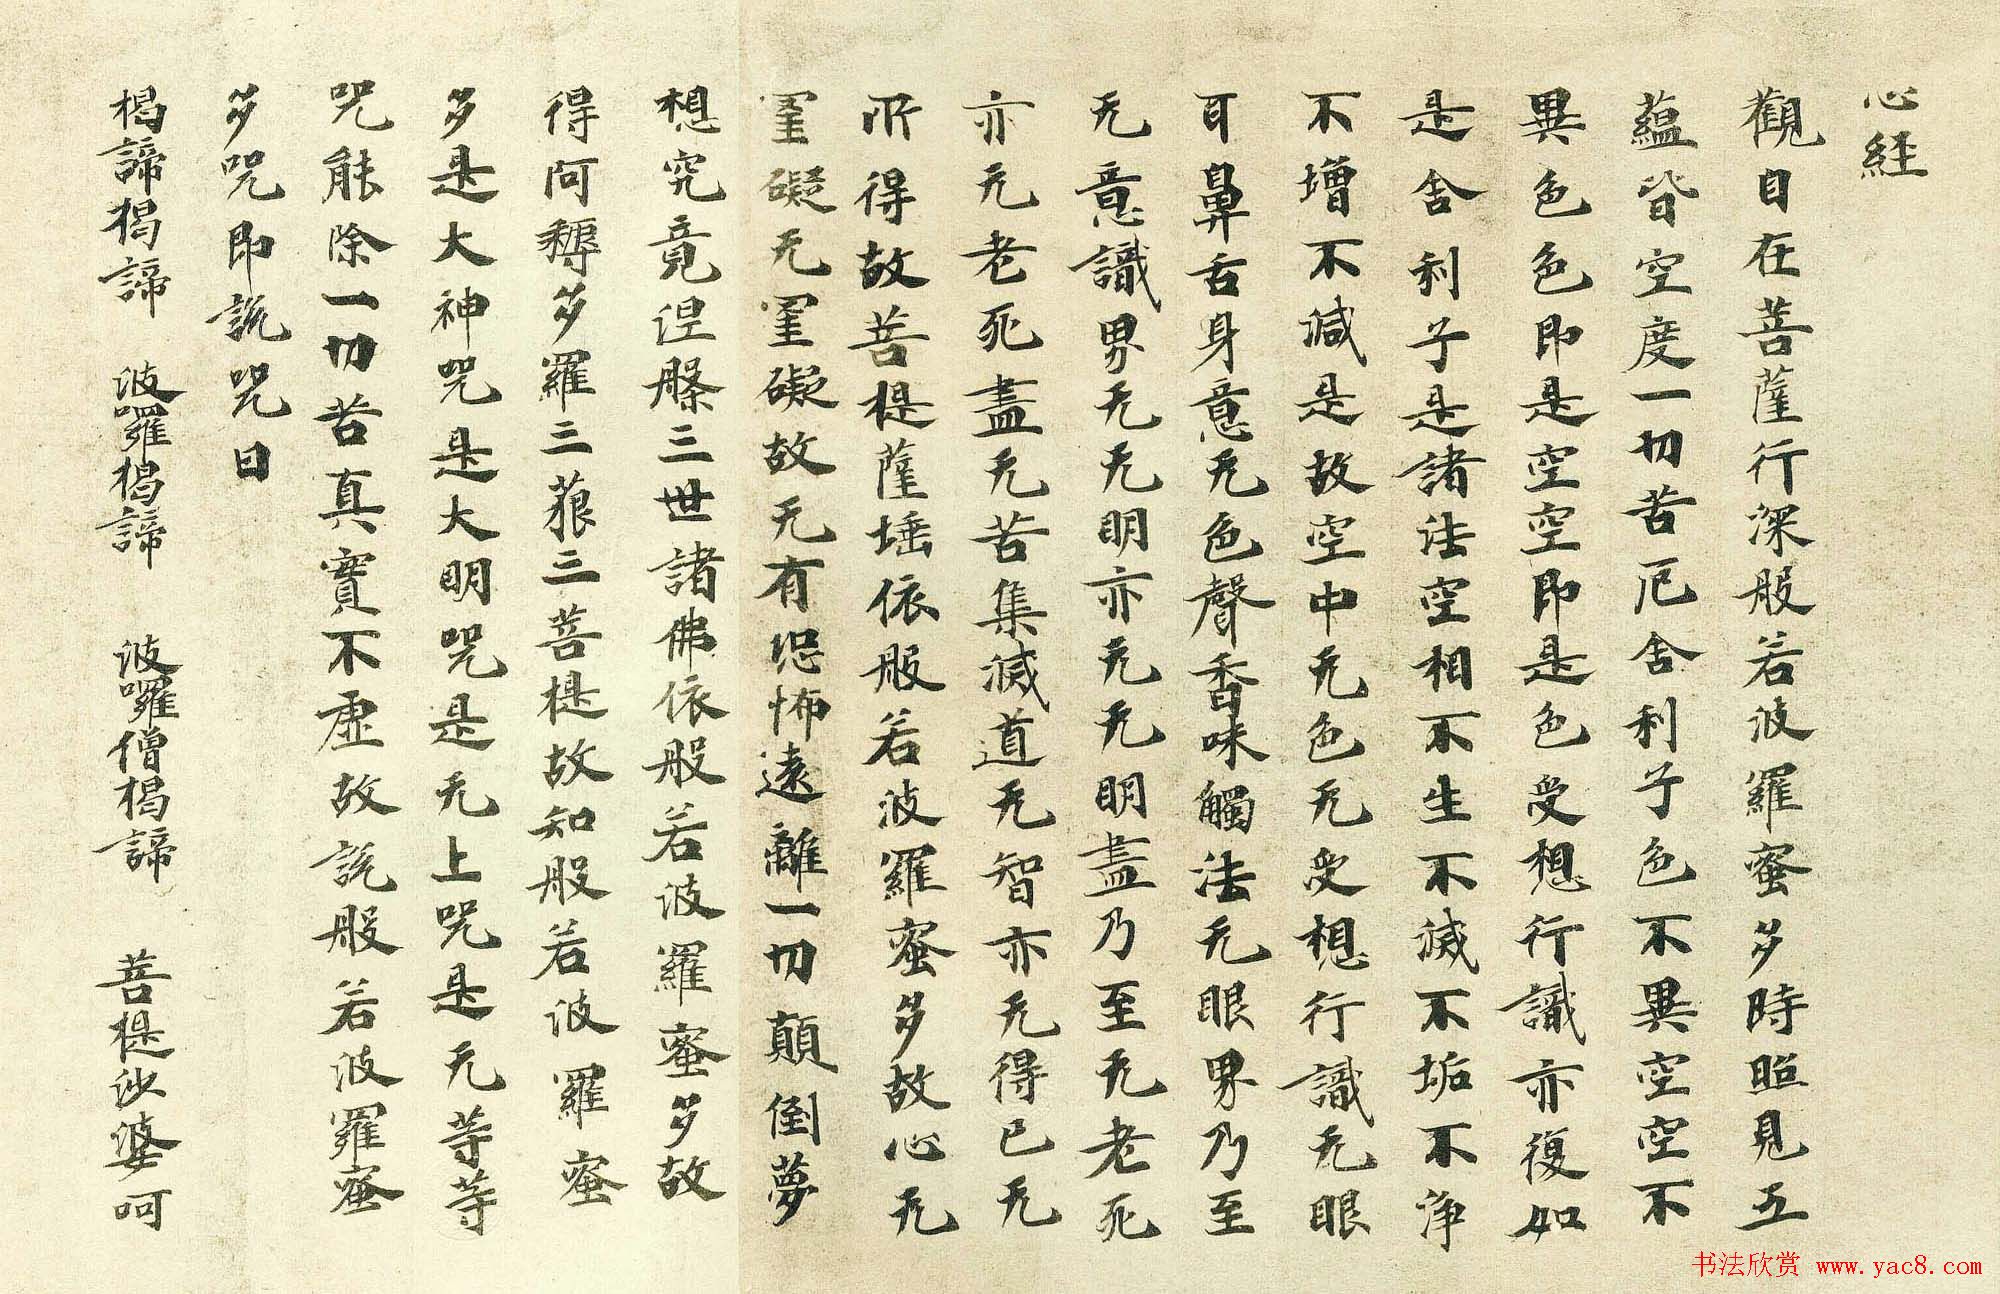 心経
觀自在菩薩行深般若波羅蜜多時照見五
蘊皆空度一切苦厄舍利子色不異空空不
異色色即是空空即是色受想行識亦復如
是舍利子是諸法空相不生不滅不垢不淨
不增不減是故空中无色无受想行識无眼
耳鼻舌身意无色聲香味觸法无眼界乃至
无意識界无无明亦无无明盡乃至无老死
亦无老死盡无苦集滅道无智亦无得已无
所得故菩提薩埵依般若波羅蜜多故心无
罣礙无罣礙故无有恐怖遠離一切顛倒夢
想究竟涅槃三世諸佛依般若波羅蜜多故
得阿耨多羅三藐三菩提故知般若波羅蜜
多是大神咒是大明咒是无上咒是无等等
咒能除一切苦真實不虛故說般若波羅蜜
多咒即說咒曰
揭諦揭諦 波囉揭諦 波囉僧揭諦 菩提沙婆呵
书法欣赏 www.yac8.com